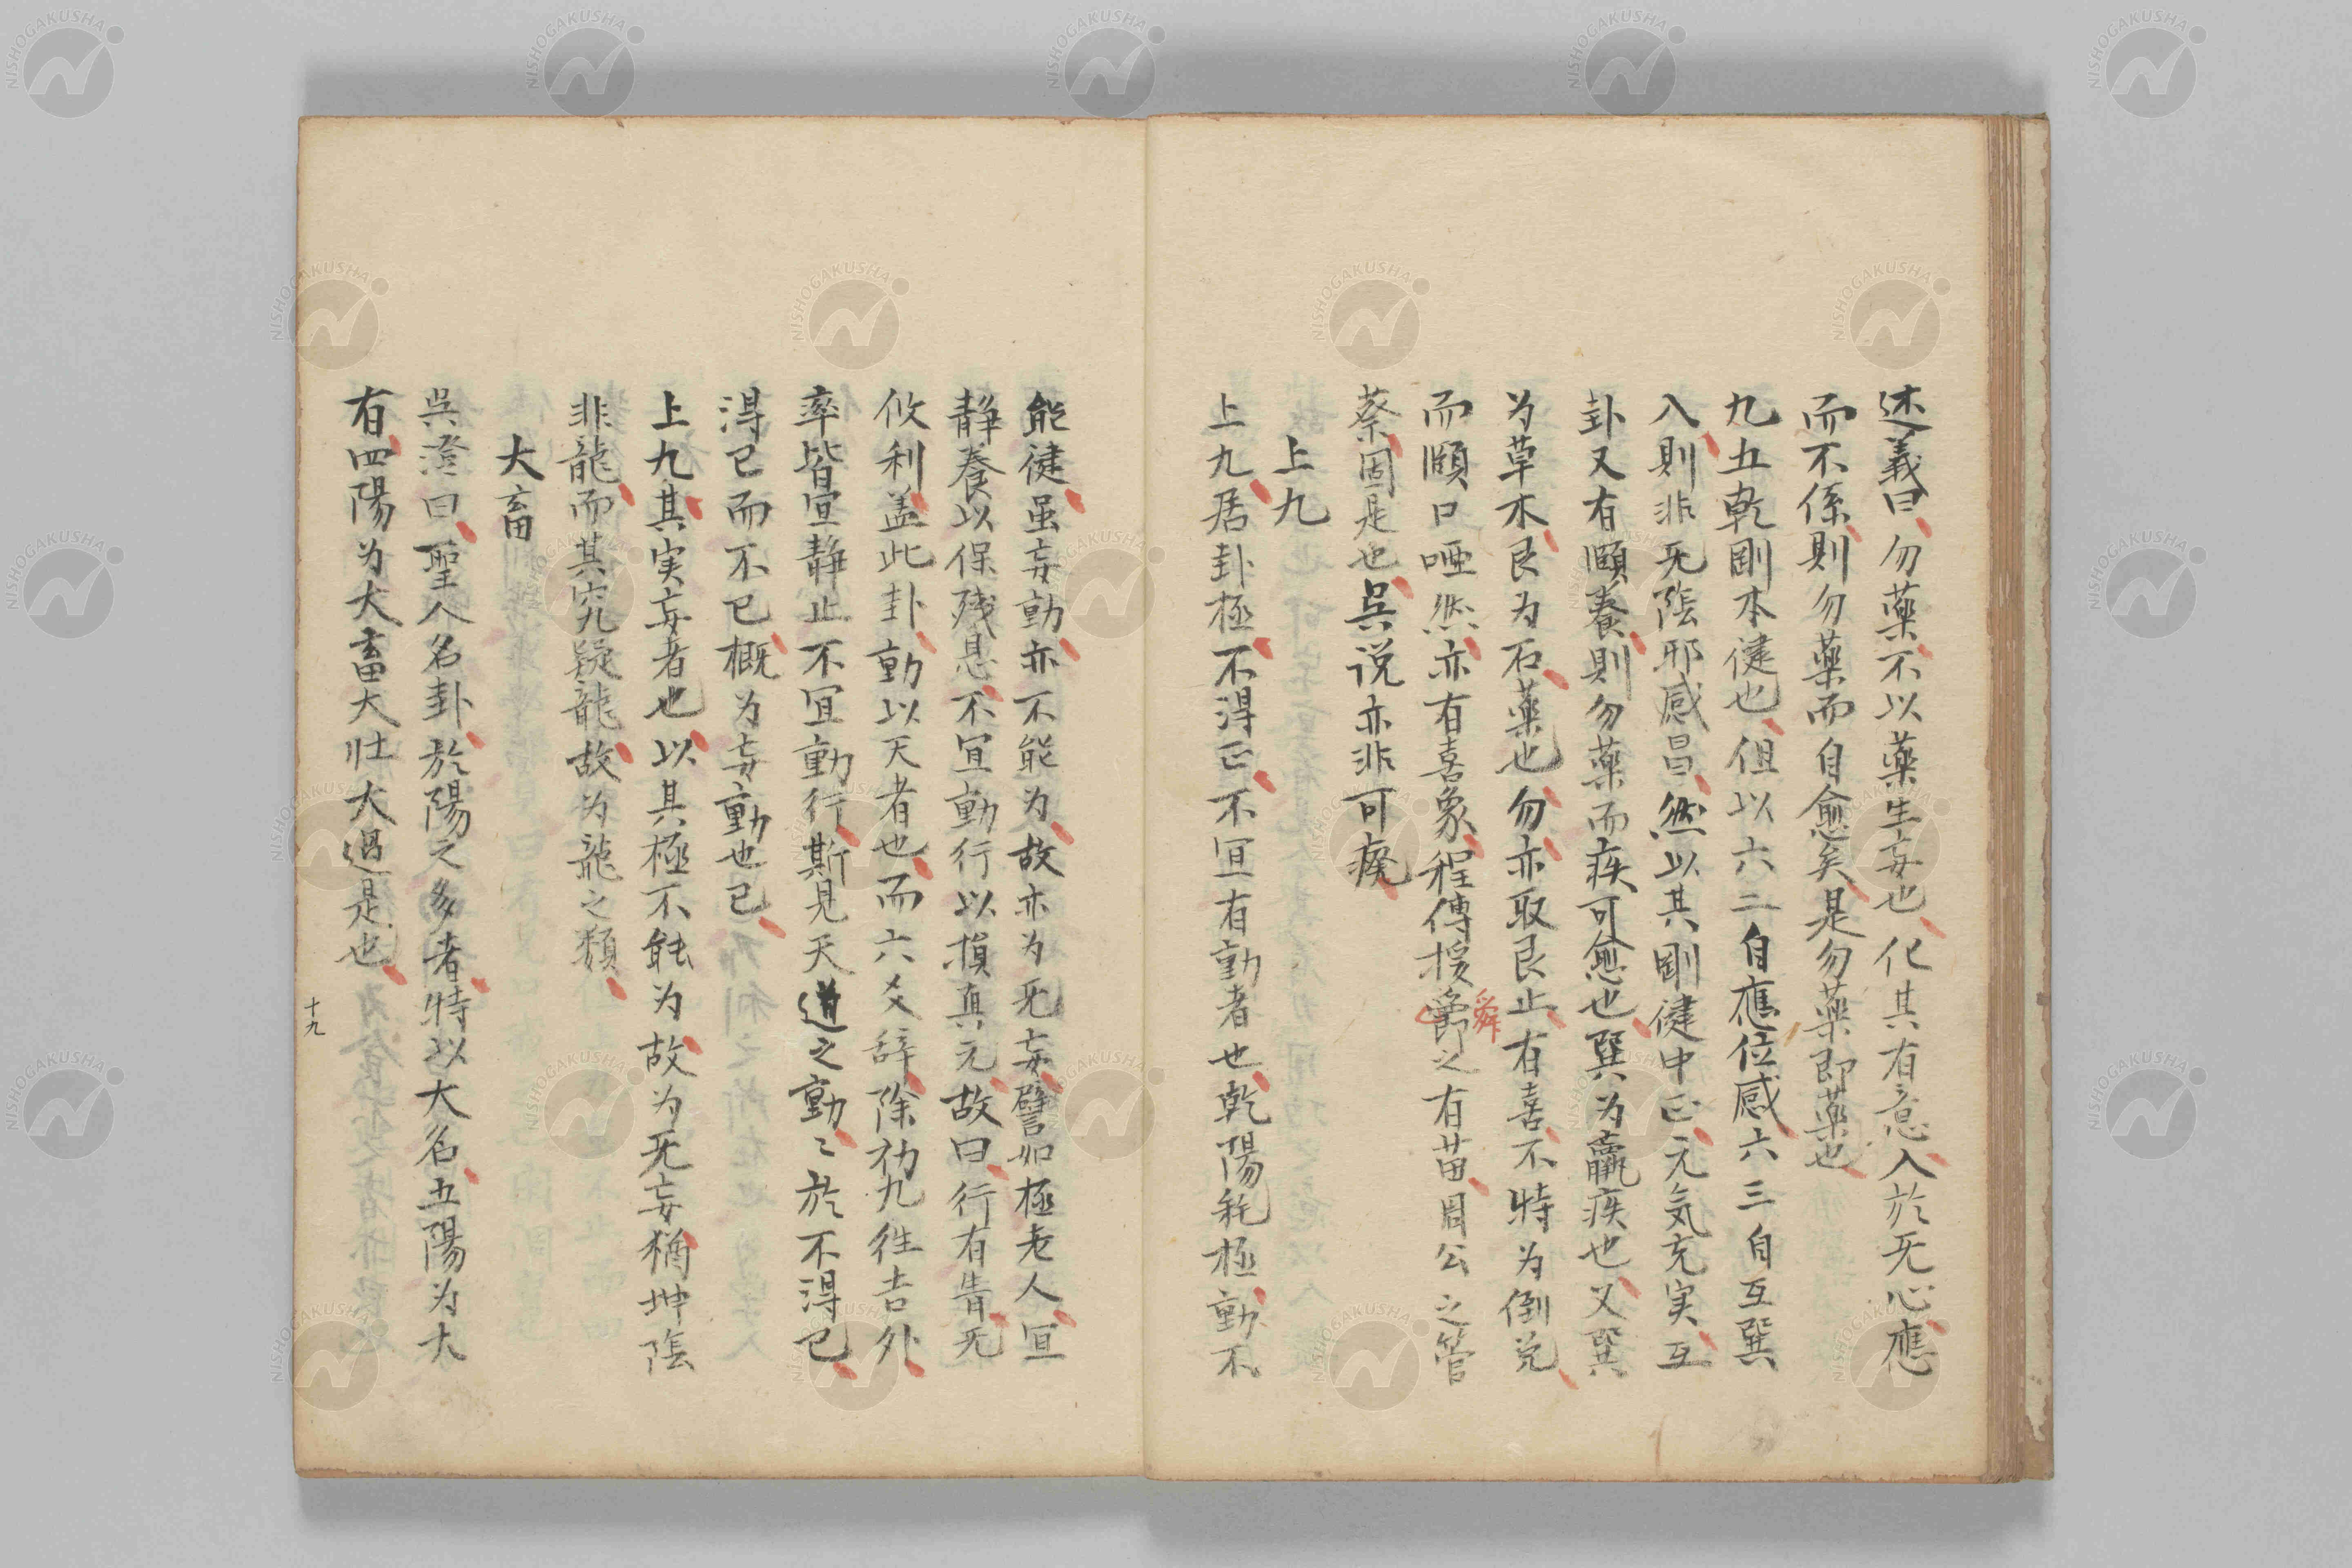 述義曰勿藥不以藥生妄也化其有意入於无心應
而不係則勿藥而自愈矣是勿藥即藥也
九五乾剛本健也但以六二自應位感六三自互巽
入則非无陰邪感昌然以其剛健中正元気充実互
卦又有頤養則勿藥而疾可愈也巽为羸疾也又巽
为草木艮为石藥也勿亦取艮止有喜不特为倒兌
而頤口唖然亦有喜象程傳援爵之有苗周公之管
舜
蔡固是也吳说亦非可癈
上九
上九居卦極不得正不宜有動者也乾陽秏極動不
能健虽妄動亦不能为故亦为无妄譬如極老人宜
静養以保残息不宜動行以損真元故曰行有眚无
攸利盖此卦動以天者也而六爻辞除初九徃吉外
率皆宜静止不宜動行斯見天道之動〻於不得已
淂已而不已概为妄動也已
上九其実妄者也以其極不能为故为无妄猶坤陰
非龍而其究疑龍故为龍之類
大畜
吳澄曰聖人名卦於陽之多者特以大名五陽为大
有四陽为大畜大壮大過是也
十九
NISHOGAKUSHA